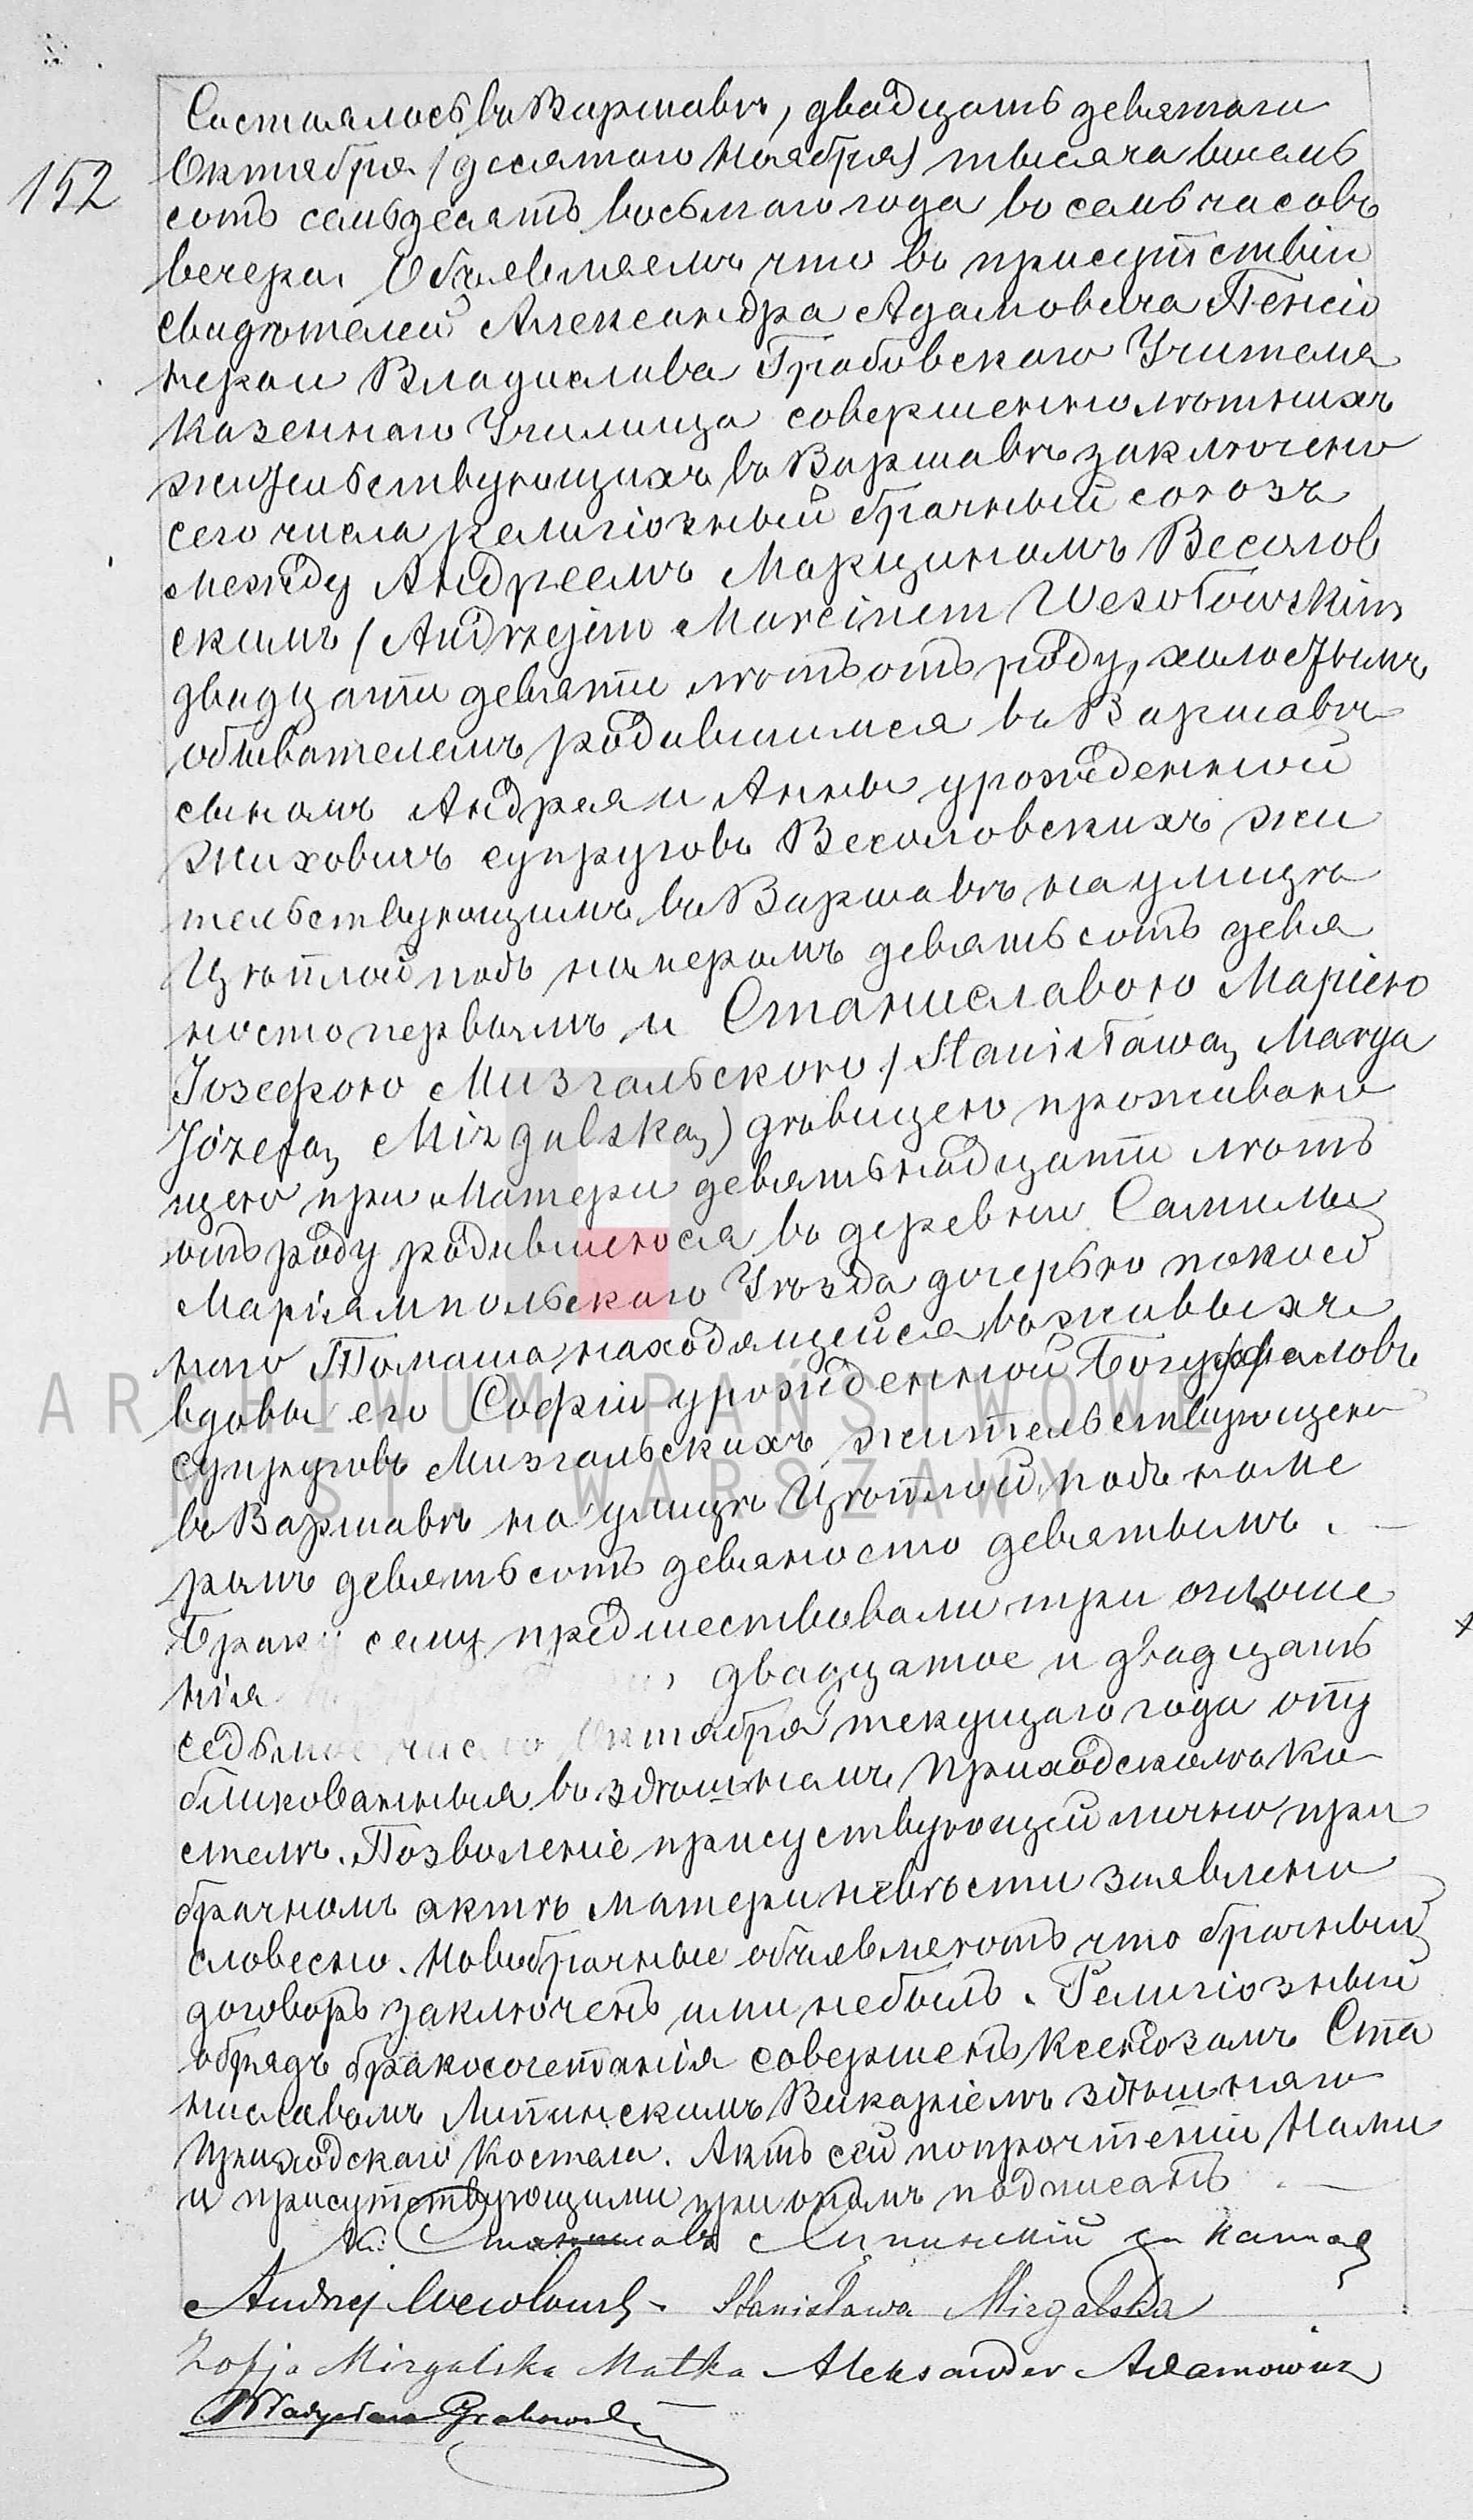 152
Состоялось въ Варшавѣ, двадцать девятаго
Октября (десятаго Ноября) тысяча восемь
сотъ семьдесятъ восьмаго года въ семь часовъ
вечера. Объявляемъ что въ присутствіи
свидѣтелей Александра Адамовича Пенсіо
нера и Владислава Грабовскаго Учителя
Казеннаго Училища совершеннолѣтнихъ
жительствующихъ въ Варшавѣ заключено
сего числа религіозный брачный союзъ
между Андреемъ Марциномъ Весолов
скимъ (Andrzejem Marcinem Wesołowskim
двадцати девяти лѣтъ отъ роду, холостымъ
обывателемъ родившимся въ Варшавѣ
сыномъ Андрея и Анны урожденной
Жиховичъ супруговъ Весоловскихъ жи
тельствующимъ въ Варшавѣ на улицѣ
Цѣплой подъ номеромъ девятьсотъ девя
носто первымъ и Станиславою Маріею
Іозефою Мизгальскою (Stanisławą Marya
Józefą Mizgalską) дѣвицею проживаю
щею при Матери девятьнадцати лѣтъ
отъ роду родившеюся въ деревни
Маріампольскаго Уѣзда дочерью покой
наго Томаша находящейся въ живыхъ
вдовы его Софіи урожденной Богуффаловъ
супруговъ Мизгальскихъ, жительствующею
въ Варшавѣ на улицѣ Цѣплой подъ номе
ромъ девятьсотъ девяносто девятымъ. —
Браку сему предшествовали три оглоше
нія двадцатое и двадцать
седьмое число Октября текущаго года опу
бликованныя въ здѣшнемъ Приходскомъ Ко
стелѣ. Позволеніе присуствующей лично при
брачномъ актѣ матери невѣсти заявлено
словесно. Новобрачные объявляютъ что брачный
договоръ заключенъ ими небылъ. Религіозный
обрядъ бракосочетанія совершенъ Ксендзомъ Ста
ниславомъ Липинскимъ Викаріемъ здѣшняго
Приходскаго Костела. Актъ сей по прочтеніи Нами
и присутствующими при ономъ подписанъ —
Кс: Станиславъ Липинскій
Andrzej Wesołowski - Stanisława Mizgalska
Zofja Mizgalska Matka Aleksander Adamowicz
Władysław Grabowski
ARCHIWUM PAŃSTWOWE
M.ST. WARSZAWY